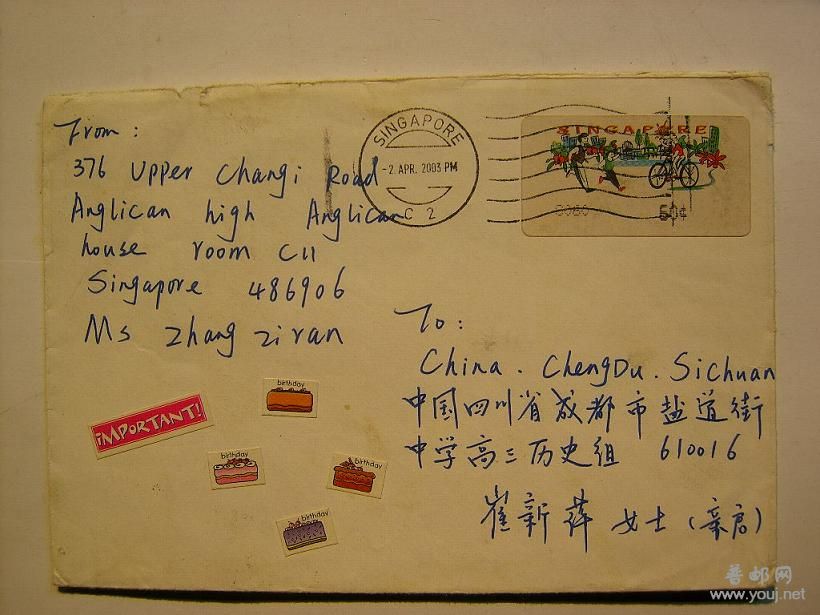 From :
376 Upper Changi Road
Anglican high Anglican
house room C11
Singapore 486906
Ms Zhang Ziran
SINGAPORE
-2. APR. 2003 PM
C 2
SINGAPORE
50¢
To :
China . ChengDu . Sichuan
中国四川省成都市盐道街
中学高三历史组 610016
崔新萍 女士 (亲启)
iMPORTANT!
birthday
birthday
birthday
birthday
普邮网
www.youj.net